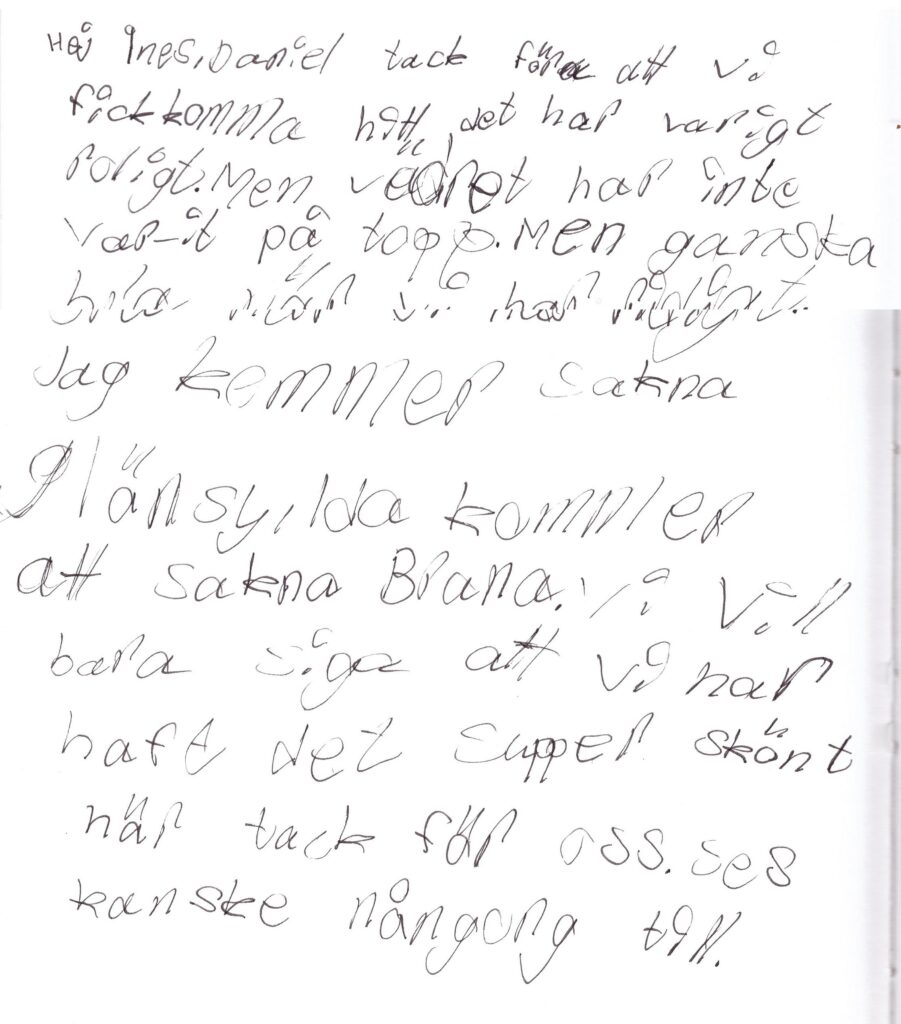 Hej Ines, Daniel tack för att vi
fick komma hitt, det har varigt
roligt. Men vädret har inte
var-it på topp. Men ganska
bra när vi har ridigt.
Jag kommer sakna
Glänsy, Ida kommer
att sakna Brana. Vi vill
bara siga att vi har
haft det supper skönt
här tack för oss. ses
kanske nångong till.